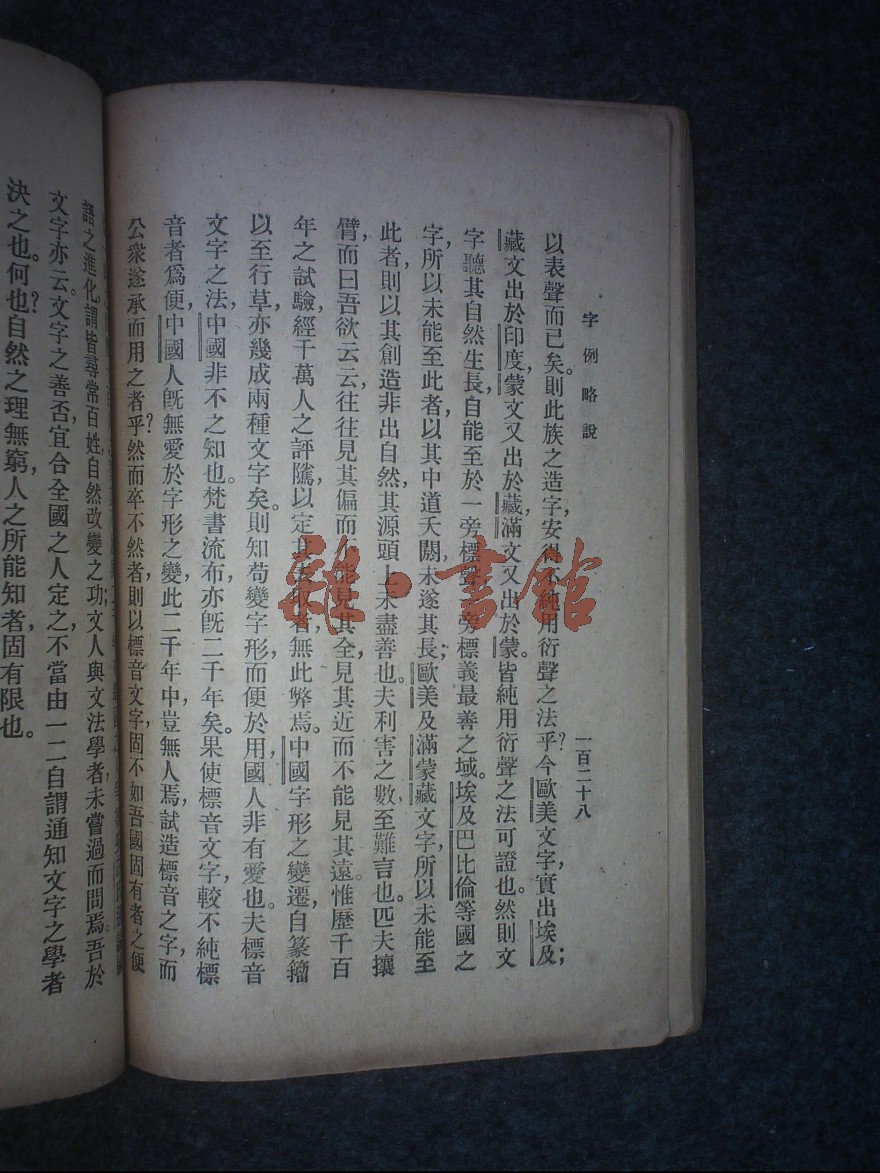 字例略說
一百二十八
以表聲而已矣。則此族之造字，安得不純用衍聲之法乎？今歐美文字，實出埃及；
藏文出於印度，蒙文又出於藏，滿文又出於蒙。皆純用衍聲之法可證也。然則文
字，聽其自然生長，自能至於一旁標聲，一旁標義最善之域。埃及巴比倫等國之
字，所以未能至此者，以其中道夭閼，未遂其長；歐美及滿蒙藏文字，所以未能至
此者，則以其創造非出自然，其源頭上未盡善也。夫利害之數，至難言也。匹夫攘
臂而曰吾欲云云，往往見其偏而不能見其全，見其近而不能見其遠。惟歷千百
年之試驗，經千萬人之評騭，以定其去取者，無此弊焉。中國字形之變遷，自篆籀
以至行草，亦幾成兩種文字矣。則知苟變字形而便於用，國人非有愛也。夫標音
文字之法，中國非不之知也。梵書流布，亦旣二千年矣。果使標音文字，較不純標
音者爲便，中國人旣無愛於字形之變，此二千年中，豈無人焉，試造標音之字，而
公衆遂承而用之者乎？然而卒不然者，則以標音文字，固不如吾國固有者之便
語之進化，謂皆尋常百姓自然改變之功；文人與文法學者，未嘗過而問焉。吾於
文字亦云。文字之善否，宜合全國之人定之，不當由一二自謂通知文字之學者
決之也。何也？自然之理無窮，人之所能知者固有限也。
雜·書館